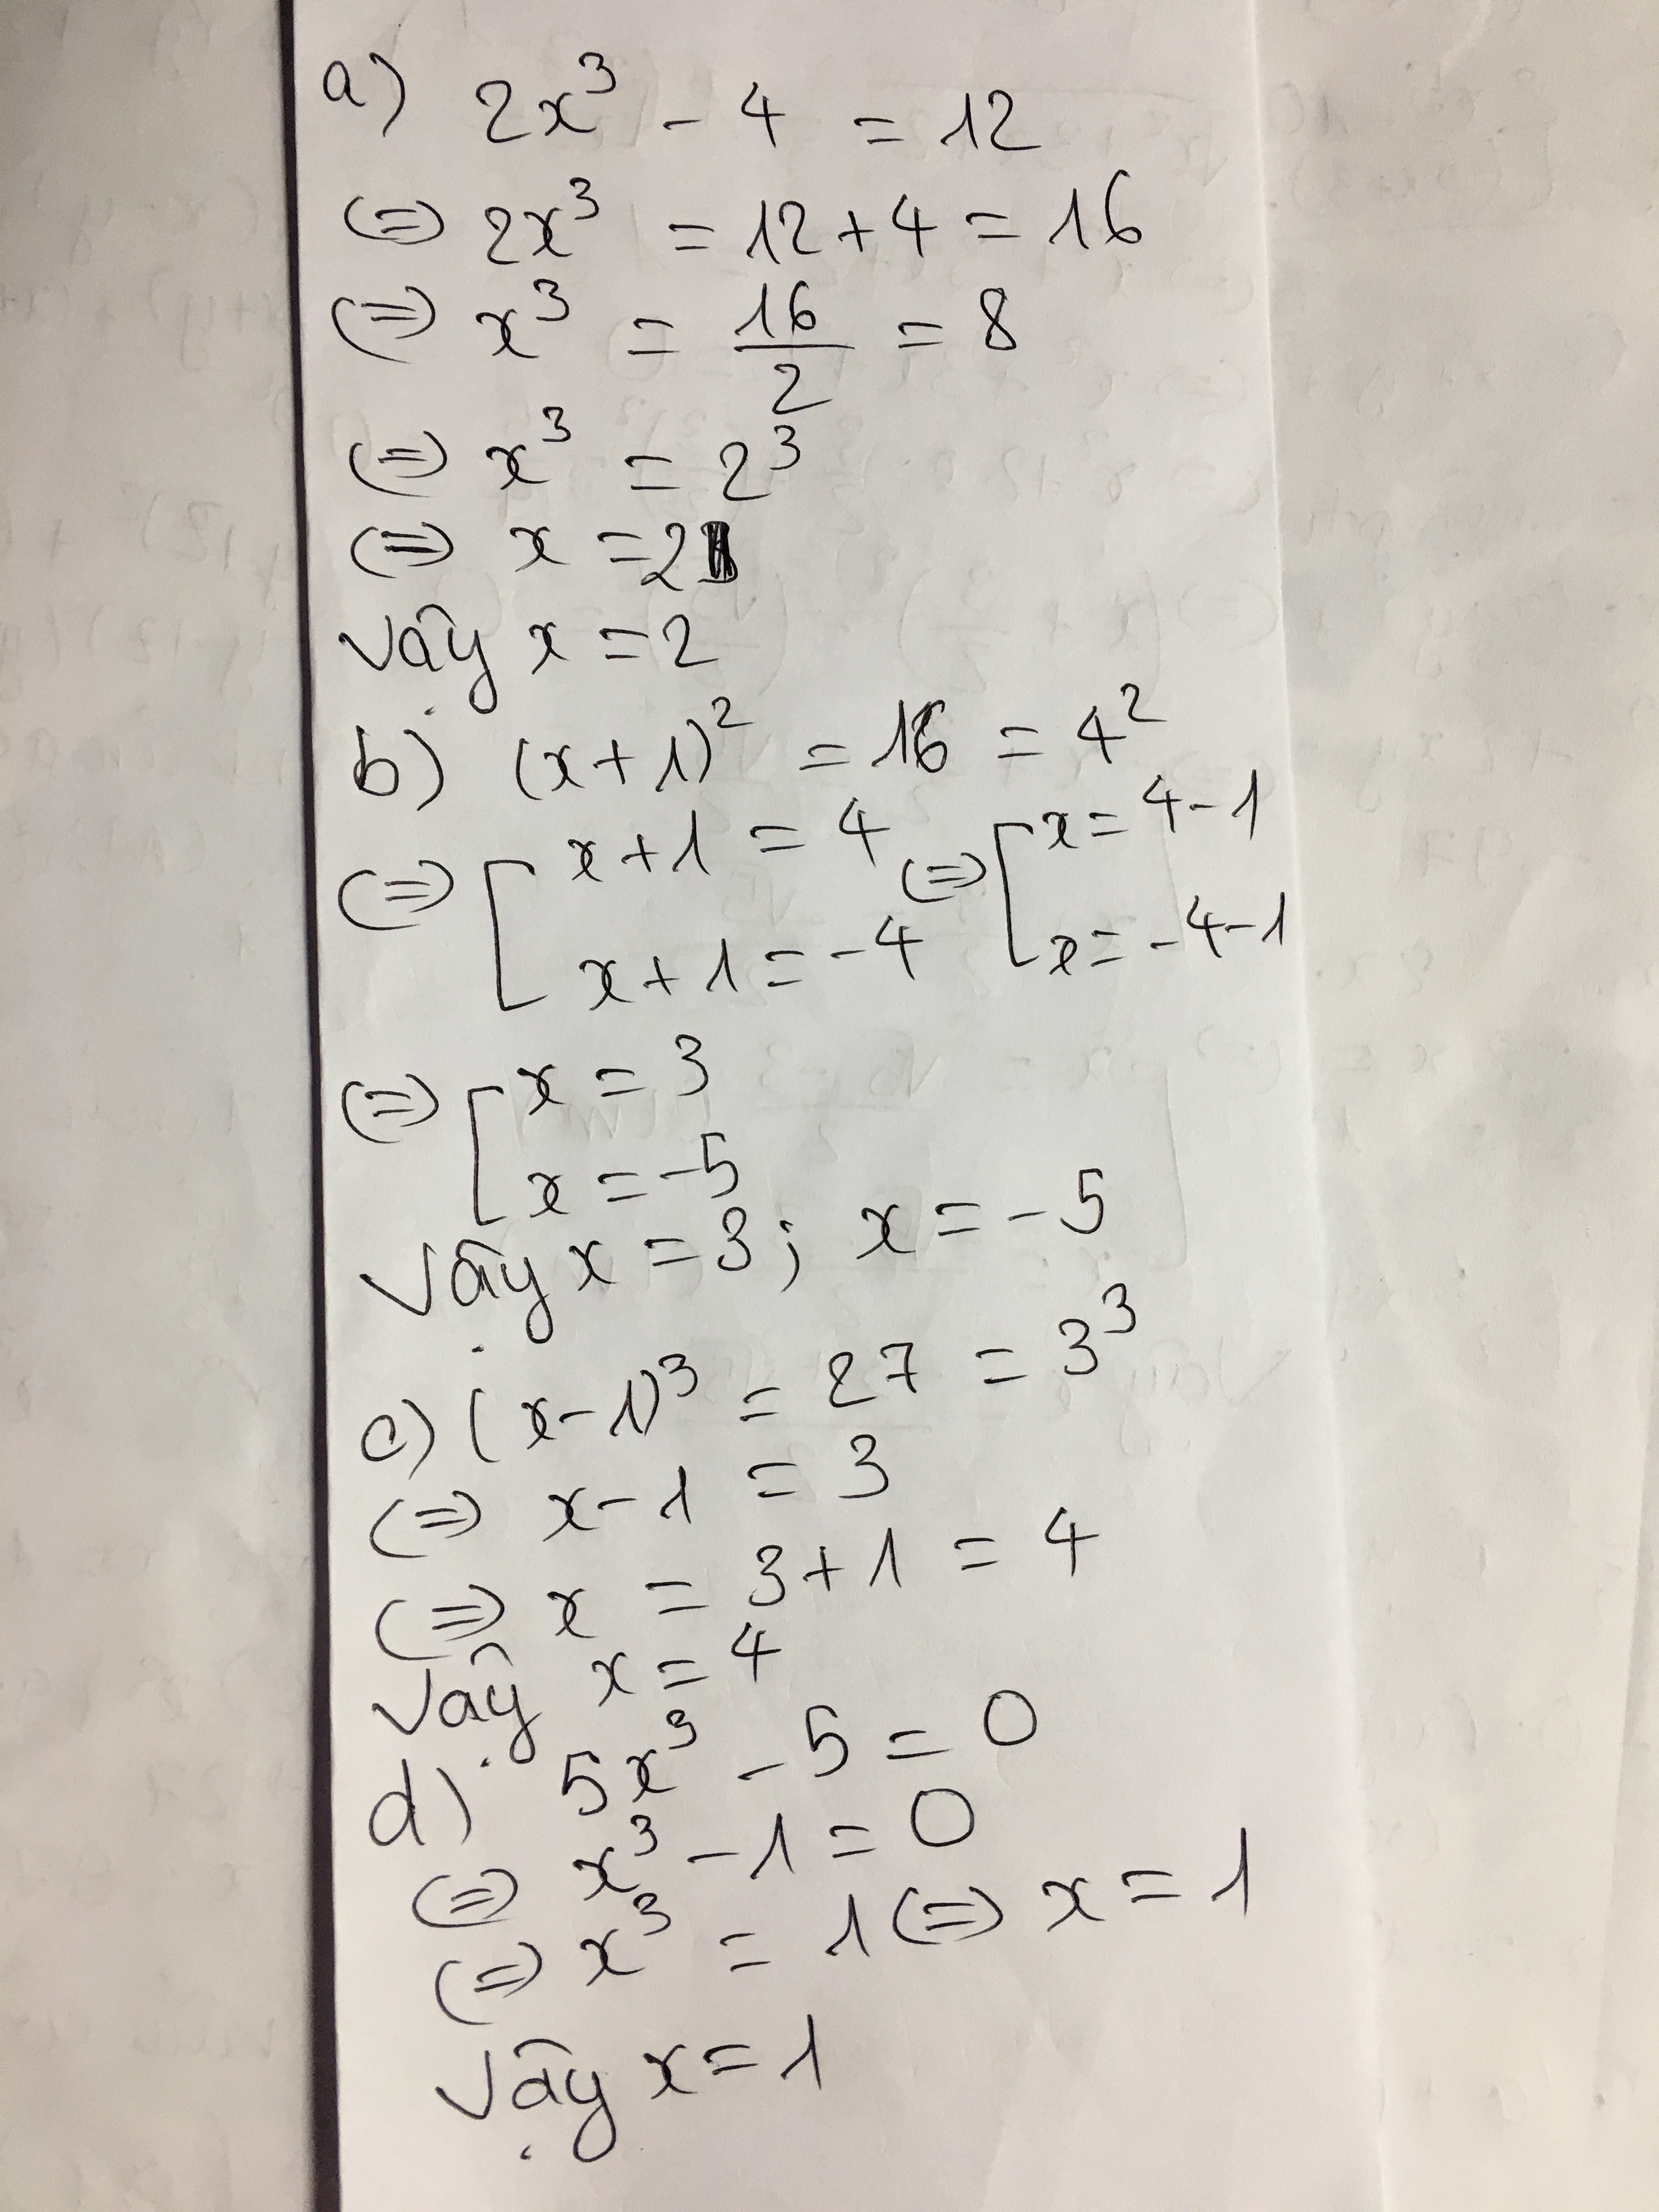 a) 2x³ - 4 = 12
(=) 2x³ = 12 + 4 = 16
(=) x³ = 16/2 = 8
(=) x³ = 2³
(=) x = 2
Vậy x = 2
b) (x + 1)² = 16 = 4²
(=) [ x + 1 = 4 (=) [ x = 4 - 1
x + 1 = -4 x = -4 - 1
(=) [ x = 3
x = -5
Vậy x = 3; x = -5
c) (x - 1)³ = 27 = 3³
(=) x - 1 = 3
(=) x = 3 + 1 = 4
Vậy x = 4
d) 5x³ - 5 = 0
(=) x³ - 1 = 0
(=) x³ = 1 (=) x = 1
Vậy x = 1